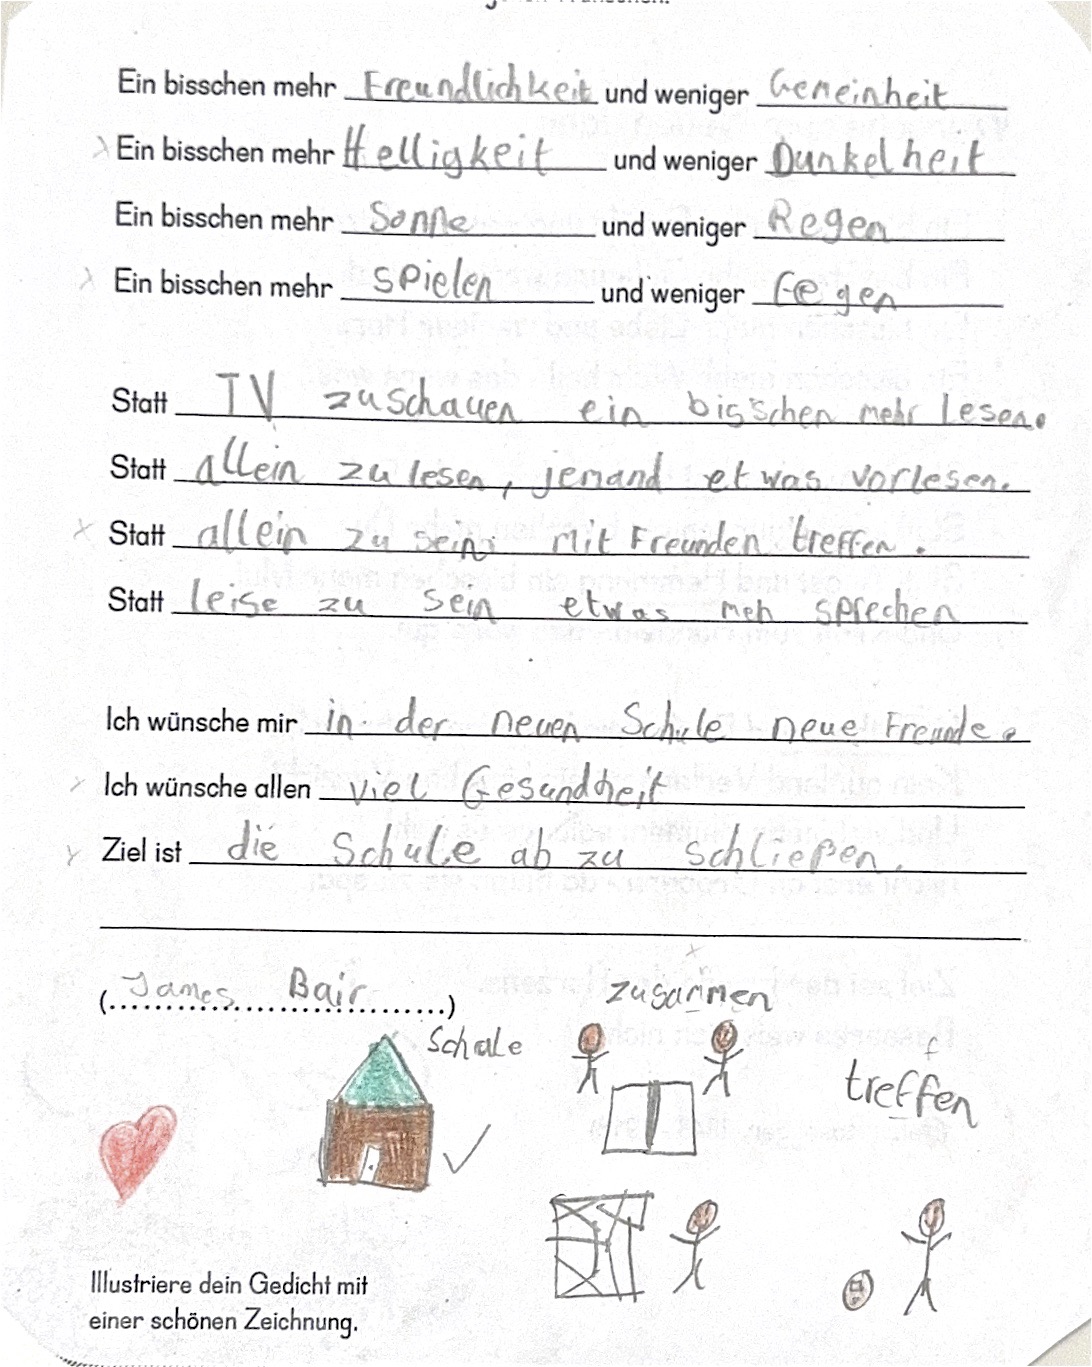 Ein bisschen mehr Freundlichkeit und weniger Gemeinheit
Ein bisschen mehr Helligkeit und weniger Dunkelheit
Ein bisschen mehr Sonne und weniger Regen
Ein bisschen mehr spielen und weniger fegen
Statt TV zuschauen ein bisschen mehr Lesen.
Statt allein zu lesen, jemand etwas vorlesen.
Statt allein zu sein mit Freunden treffen.
Statt leise zu sein etwas meh sprechen
Ich wünsche mir in der neuen Schule neue Freunde.
Ich wünsche allen viel Gesundheit
Ziel ist die Schule ab zu schließen.
(James Bair)
zusammen
Schule
f
treffen
Illustriere dein Gedicht mit
einer schönen Zeichnung.